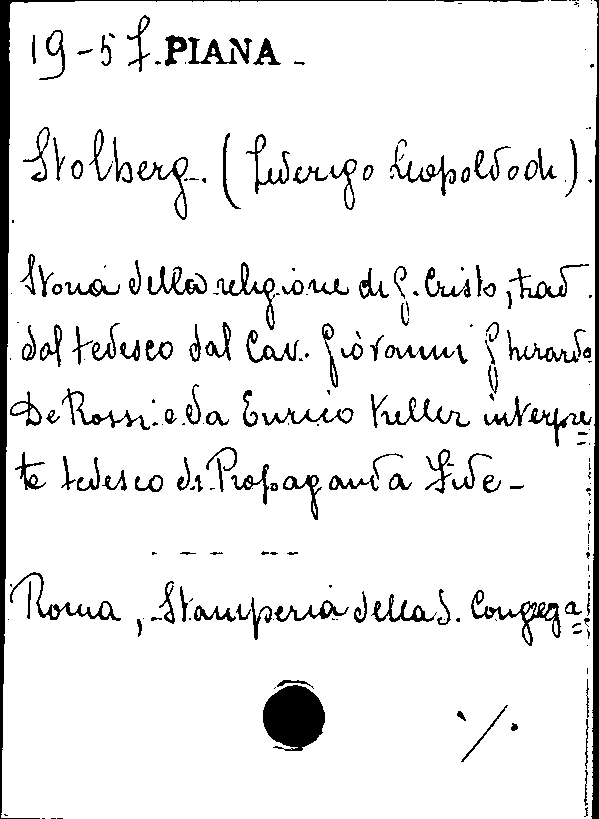 19-5 f. PIANA -
Stolberg. (Federigo Leopoldo di).
Storia della religione di G. Cristo, trad.
dal tedesco dal Cav. Giovanni Gherardo
De Rossi e da Enrico Keller interpre=
te tedesco di Propaganda Fide -
Roma, Stamperia della S. Congrega=
./.